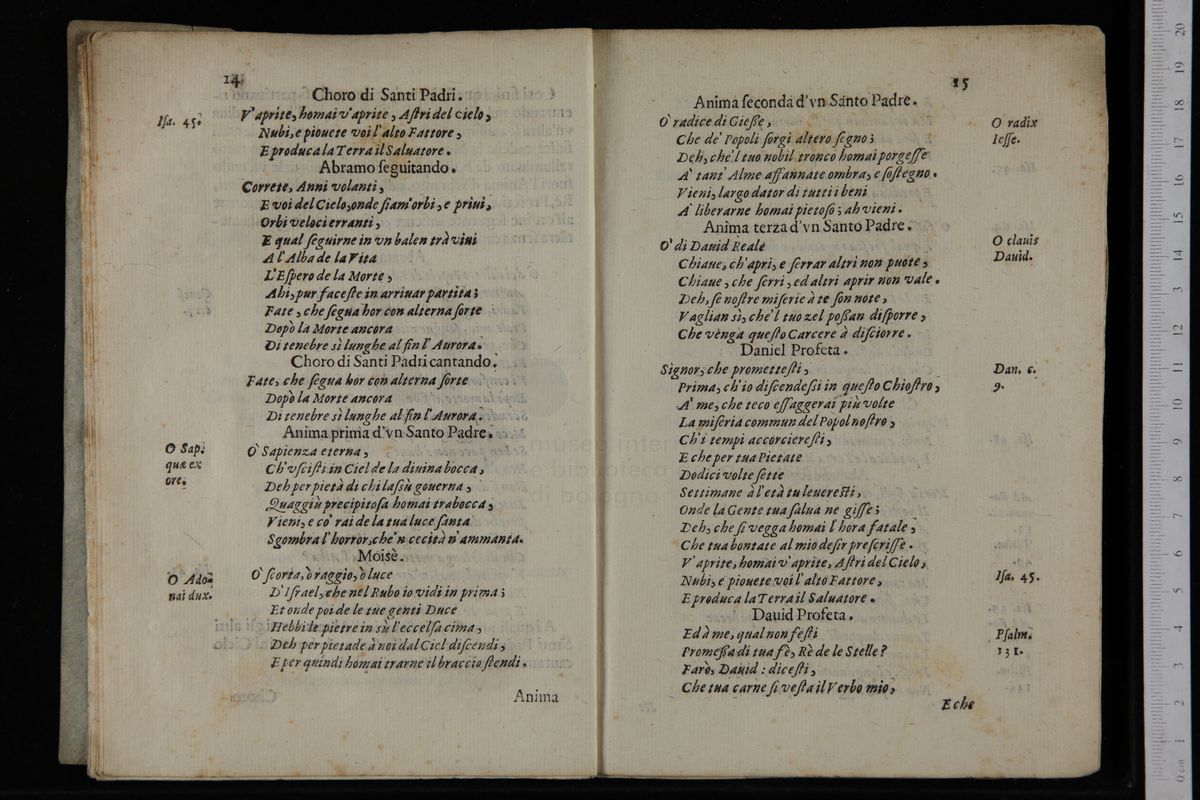 14
Choro di Santi Padri.
Isa. 45.
V'aprite, homai v'aprite, Astri del cielo,
Nubi, e piouete voi l'alto Fattore,
E produca la Terra il Saluatore.
Abramo seguitando.
Correte, Anni volanti,
E voi del Cielo, onde siam'orbi, e priui,
Orbi veloci erranti,
E qual seguirne in vn balen trà viui
A l'Alba de la Vita
L'Espero de la Morte,
Ahi, pur faceste in arriuar partita;
Fate, che segua hor con alterna sorte
Dopò la Morte ancora
Di tenebre sì lunghe al fin l'Aurora.
Choro di Santi Padri cantando.
Fate, che segua hor con alterna sorte
Dopò la Morte ancora
Di tenebre sì lunghe al fin l'Aurora.
Anima prima d'vn Santo Padre.
O Sap.
quæ ex
ore.
O Sapienza eterna,
Ch'vscisti in Ciel de la diuina bocca,
Deh per pietà di chi lassù gouerna,
Quaggiù precipitosa homai trabocca,
Vieni, e co' rai de la tua luce santa
Sgombra l'horror, che'n cecità n'ammanta.
Moisè.
O Ado-
nai dux.
O scorta, ò raggio, ò luce
D'Israel, che nel Rubo io vidi in prima;
Et onde poi de le tue genti Duce
Hebbi le pietre in sù l'eccelsa cima,
Deh per pietade à noi dal Ciel discendi,
E per quindi homai trarne il braccio stendi.
Anima
15
Anima seconda d'vn Santo Padre.
O radix
Iesse.
O radice di Giesse,
Che de' Popoli sorgi altero segno;
Deh, che'l tuo nobil tronco homai porgesse
A' tant' Alme affannate ombra, e sostegno.
Vieni, largo dator di tutti i beni
A' liberarne homai pietoso; ah vieni.
Anima terza d'vn Santo Padre.
O clauis
Dauid.
O' di Dauid Reale
Chiaue, ch'apri, e serrar altri non puote,
Chiaue, che serri, ed altri aprir non vale.
Deh, se nostre miserie à te son note,
Vaglian sì, che'l tuo zel possan disporre,
Che vènga questo Carcere à disciorre.
Daniel Profeta.
Dan. c.
9.
Signor, che promettesti,
Prima, ch'io discendessi in questo Chiostro,
A' me, che teco essaggerai più volte
La miseria commun del Popol nostro,
Ch'i tempi accorcieresti,
E che per tua Pietate
Dodici volte sette
Settimane à l'età tu leueresti,
Onde la Gente tua salua ne gisse;
Deh, che si vegga homai l'hora fatale,
Che tua bontate al mio desir prescrisse.
Isa. 45.
V'aprite, homai v'aprite, Astri del Cielo,
Nubi, e piouete voi l'alto Fattore,
E produca la Terra il Saluatore.
Dauid Profeta.
Psalm.
131.
Ed à me, qual non festi
Promessa di tua fè, Rè de le Stelle?
Farò, Dauid: dicesti,
Che tua carne si vesta il Verbo mio,
E che